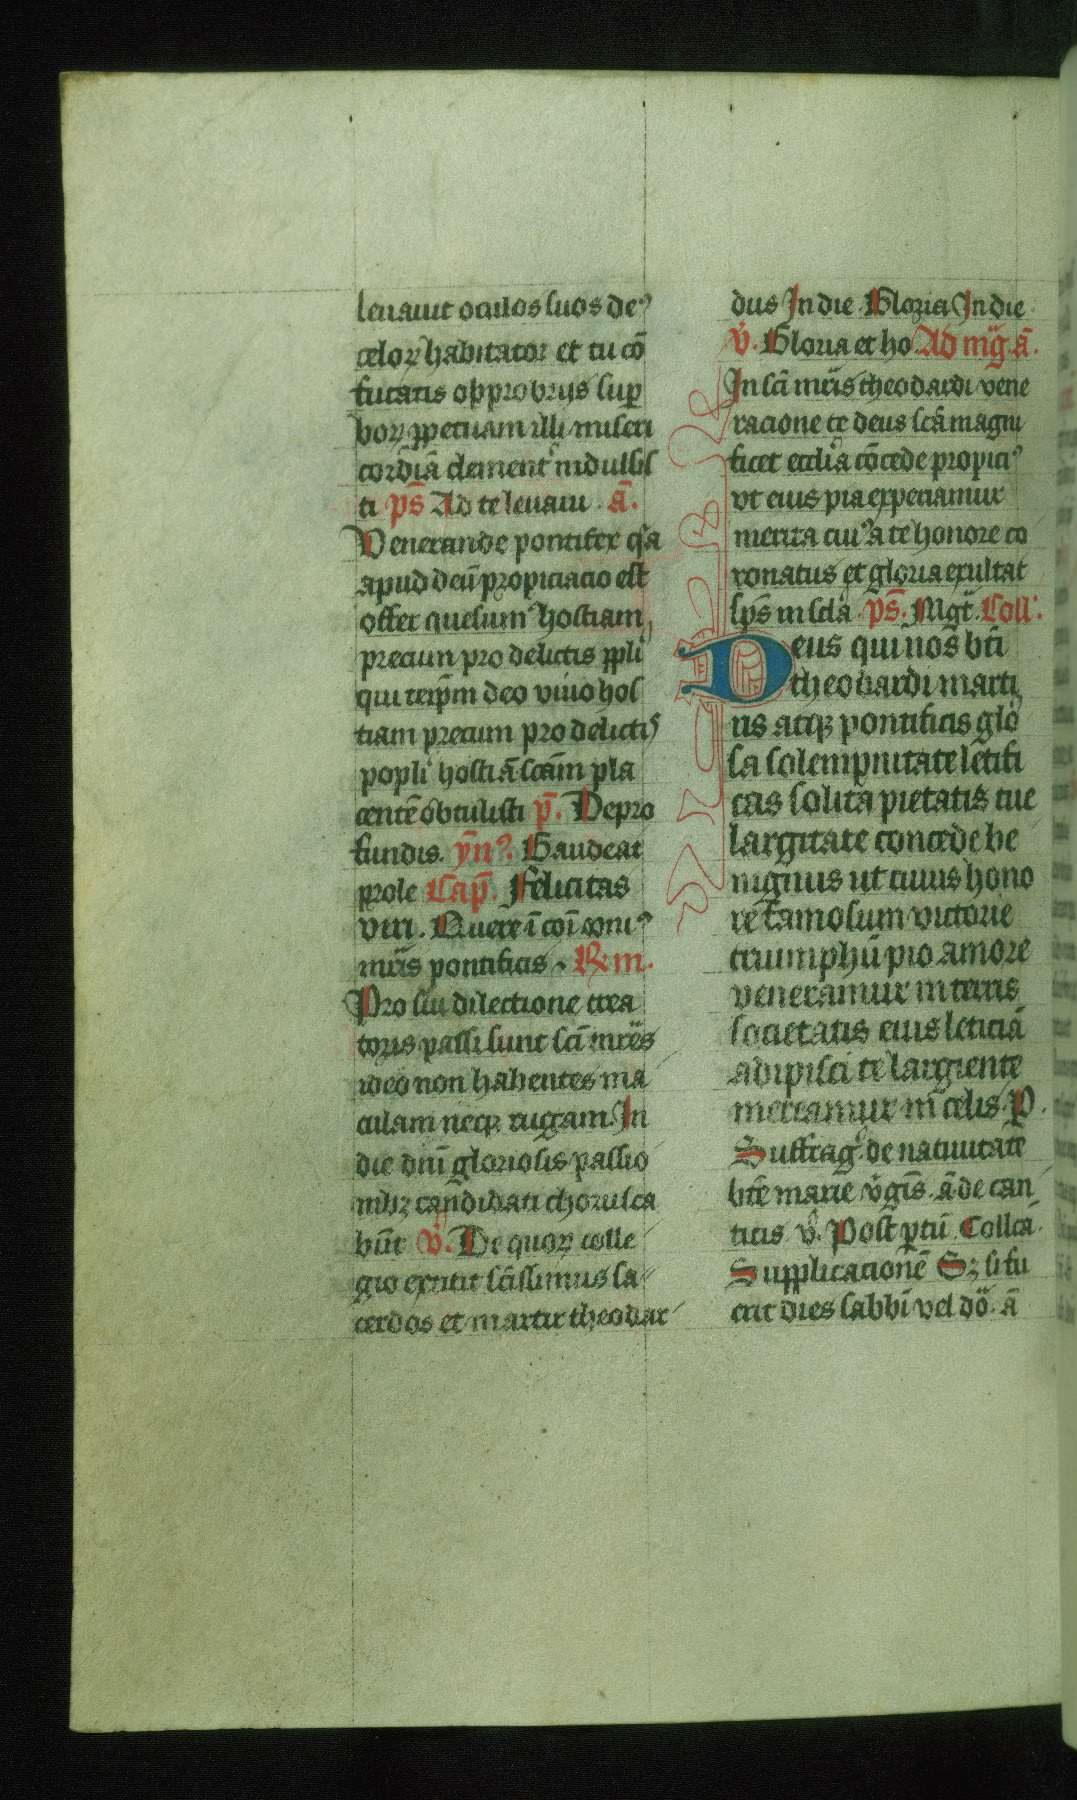 leuauit oculos suos de⁹
celoꝝ habitator et tu cō
futatis opprobrijs suꝑ
boꝝ ꝑpetuam illi miseri
cordiā clement' indulsis
ti p̄s Ad te leuaui ā.
Venerande pontifex q̄a
apud deū propiciacio est
offer quesum⁹ hostiam
precum pro delictis ppli
qui teip̄m deo viuo hos
tiam precum pro delictis
popli hostiā scām pla
centē obtulisti p̄. De pro
fundis. ȳn⁹. Gaudeat
prole Cap̄. Felicitas
viri. Quere ī coī vni⁹
mr̄is pontificis. R̄ m.
Pro sui dilectione crea
toris passi sunt scī mr̄es
ideo non habentes ma
culam neqꝫ rugam. In
die dn̄i gloriosis passio
nibꝫ candidati chorusca
būt v̊. De quoꝝ colle
gio extitit scīssimus sa
cerdos et martir theodar
dus In die Gloria In die
v̊. Gloria et ho. Ad mḡ. ā.
In scī mr̄is theodardi vene
racione te deus scā magni
ficet eccl'ia cōcede propici⁹
vt eius pia experiamur
merita cui⁹ a te honore co
ronatus et gloria exultat
sp̄s in scl'a p̄s. Mgt̄. Coll'.
Deus qui nos bt̄i
theobardi marti
ris atqꝫ pontificis glo
sa solempnitate lētifi
cas solita pietatis tue
largitate concede be
nignius ut cuius hono
rē famosum victorie
triumphū pio amore
veneramur in terris
societatis eius leticiā
adipisci te largiente
mereamur in celis. P̄.
Suffrag' de natiuitate
bt̄e marie v̊gīs. ā de can
ticis v̊. Post ptū Collcā.
Supplicacionē Sꝫ si fu
erit dies sabbī vel do. ā